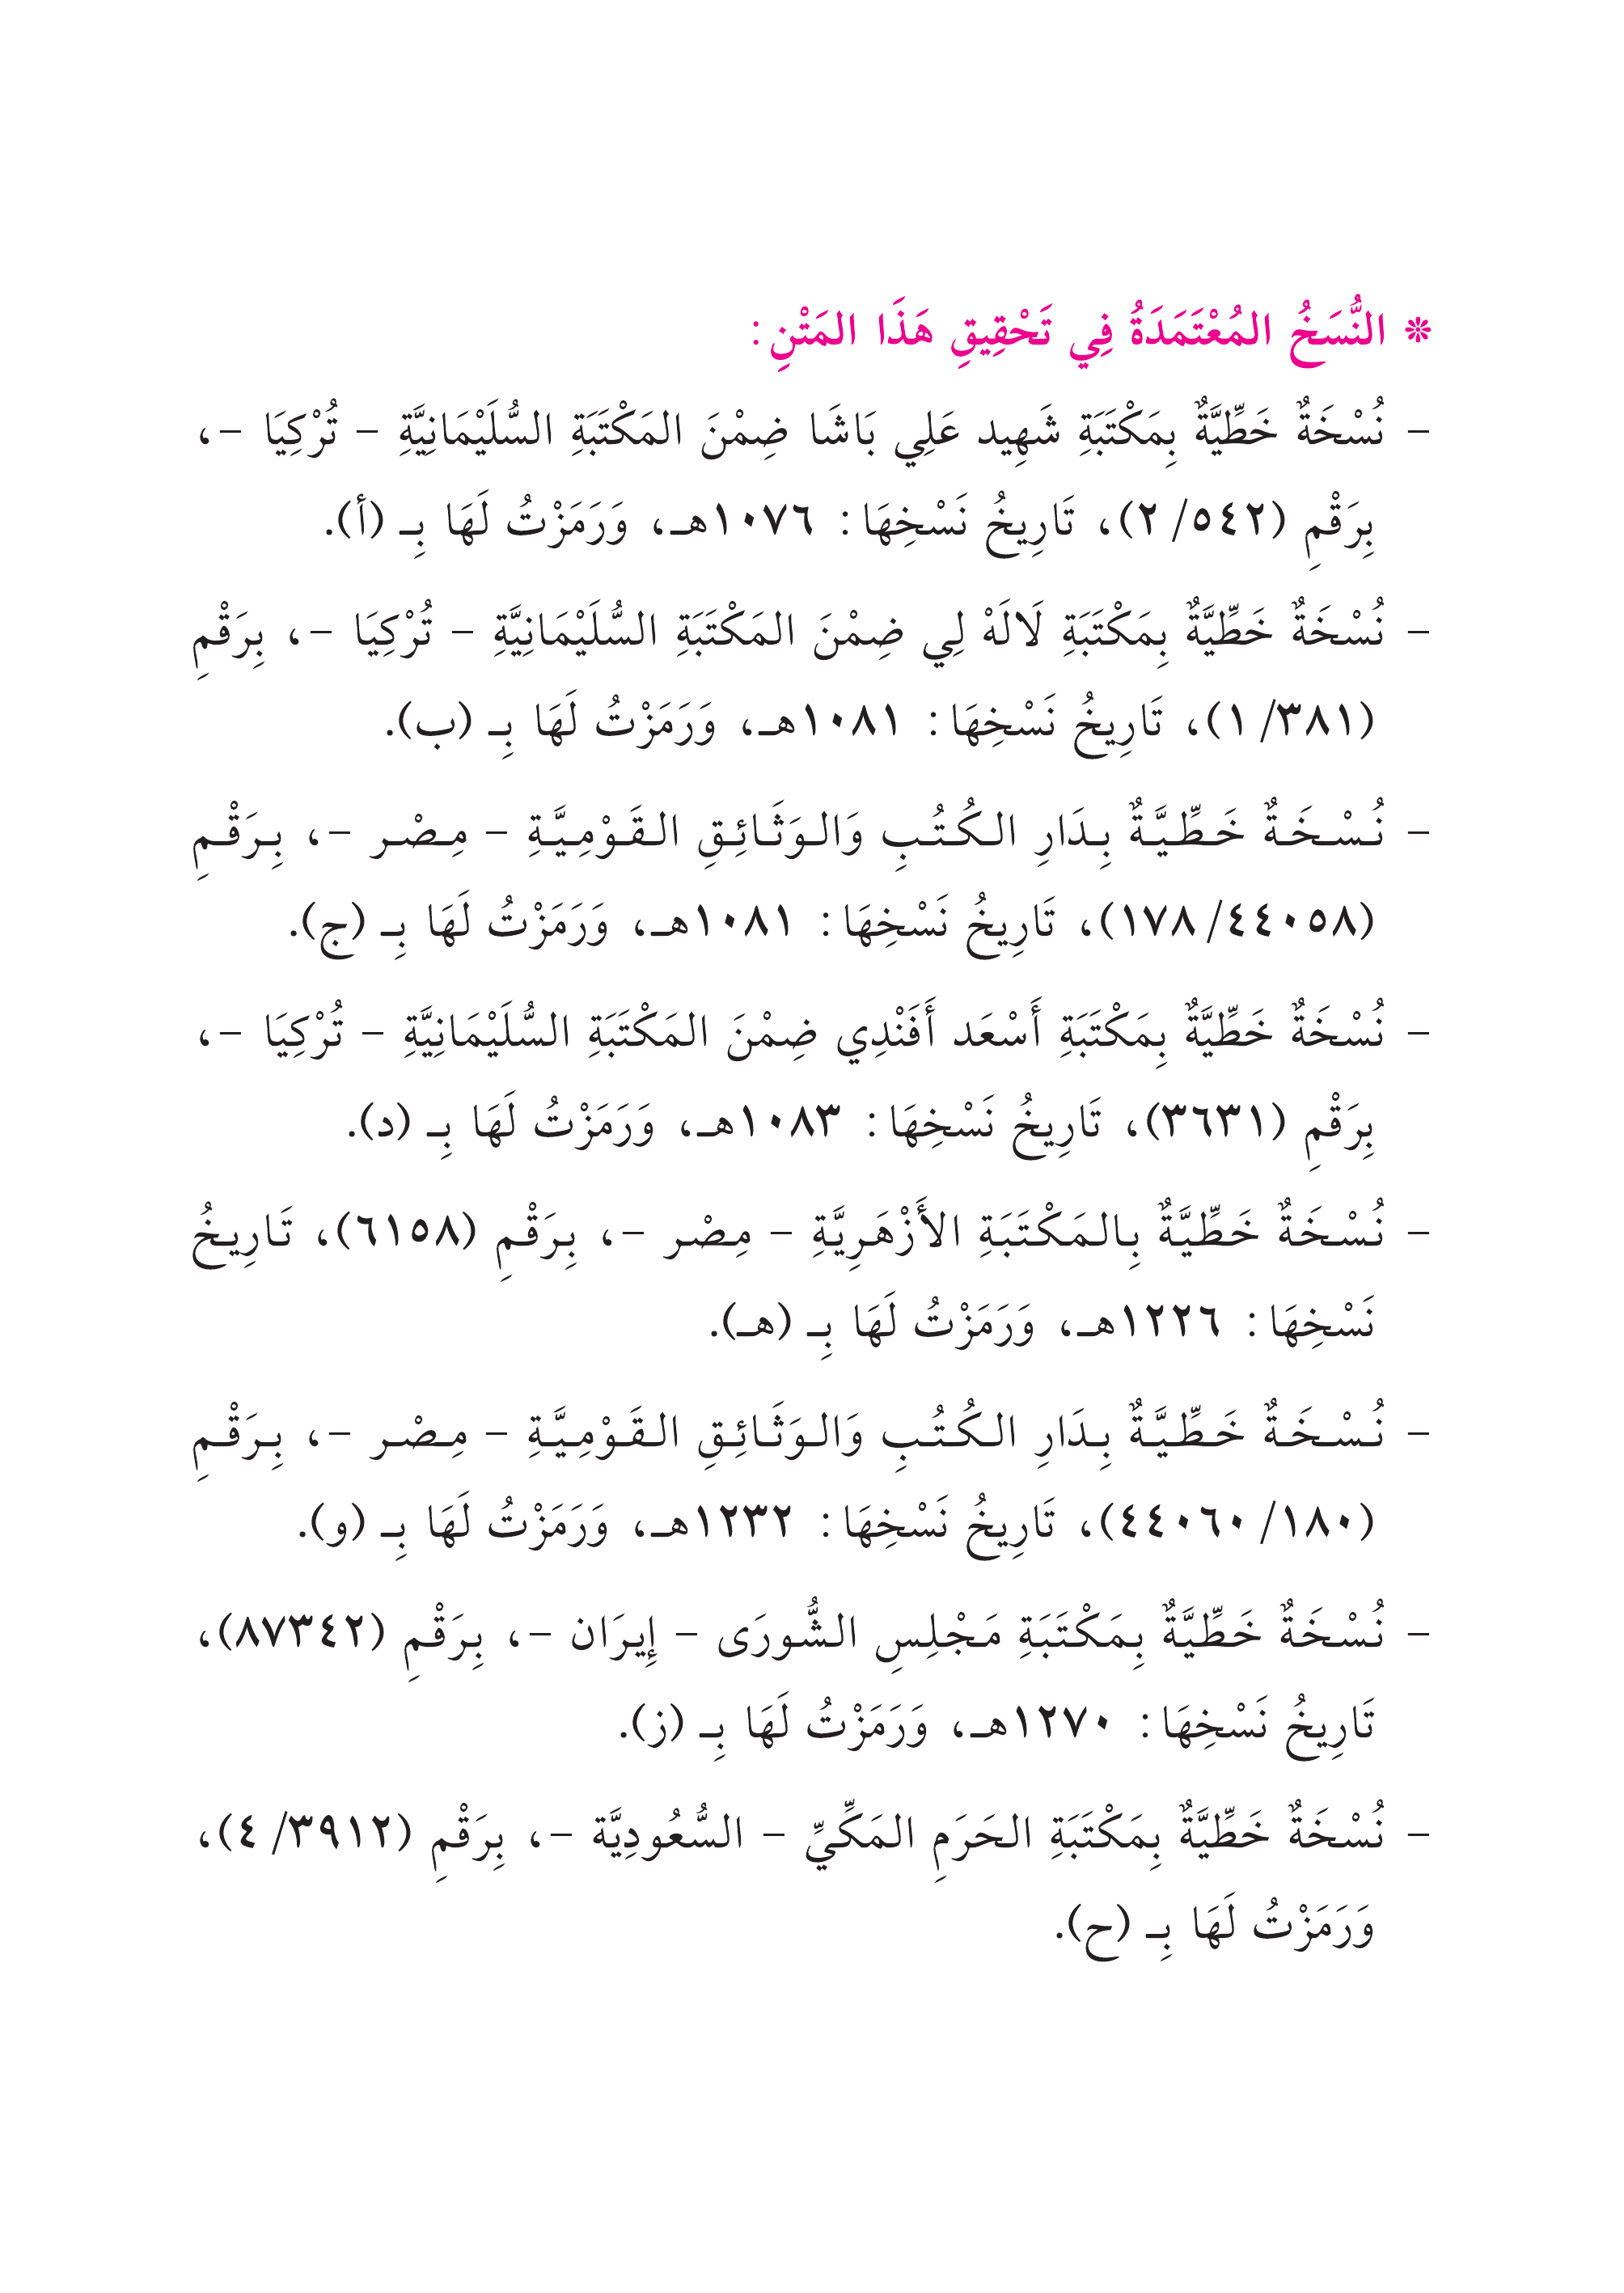 ❊ النُّسَخُ المُعْتَمَدَةُ فِي تَحْقِيقِ هَذَا المَتْنِ:
- نُسْخَةٌ خَطِّيَّةٌ بِمَكْتَبَةِ شَهِيد عَلِي بَاشَا ضِمْنَ المَكْتَبَةِ السُّلَيْمَانِيَّةِ - تُرْكِيَا -،
بِرَقْمِ (٥٤٢/ ٢)، تَارِيخُ نَسْخِهَا: ١٠٧٦هـ، وَرَمَزْتُ لَهَا بِـ (أ).
- نُسْخَةٌ خَطِّيَّةٌ بِمَكْتَبَةِ لَالَهْ لِي ضِمْنَ المَكْتَبَةِ السُّلَيْمَانِيَّةِ - تُرْكِيَا -، بِرَقْمِ
(٣٨١/ ١)، تَارِيخُ نَسْخِهَا: ١٠٨١هـ، وَرَمَزْتُ لَهَا بِـ (ب).
- نُسْخَةٌ خَطِّيَّةٌ بِدَارِ الكُتُبِ وَالوَثَائِقِ القَوْمِيَّةِ - مِصْر -، بِرَقْمِ
(٤٤٠٥٨/ ١٧٨)، تَارِيخُ نَسْخِهَا: ١٠٨١هـ، وَرَمَزْتُ لَهَا بِـ (ج).
- نُسْخَةٌ خَطِّيَّةٌ بِمَكْتَبَةِ أَسْعَد أَفَنْدِي ضِمْنَ المَكْتَبَةِ السُّلَيْمَانِيَّةِ - تُرْكِيَا -،
بِرَقْمِ (٣٦٣١)، تَارِيخُ نَسْخِهَا: ١٠٨٣هـ، وَرَمَزْتُ لَهَا بِـ (د).
- نُسْخَةٌ خَطِّيَّةٌ بِالمَكْتَبَةِ الأَزْهَرِيَّةِ - مِصْر -، بِرَقْمِ (٦١٥٨)، تَارِيخُ
نَسْخِهَا: ١٢٢٦هـ، وَرَمَزْتُ لَهَا بِـ (هـ).
- نُسْخَةٌ خَطِّيَّةٌ بِدَارِ الكُتُبِ وَالوَثَائِقِ القَوْمِيَّةِ - مِصْر -، بِرَقْمِ
(١٨٠/ ٤٤٠٦٠)، تَارِيخُ نَسْخِهَا: ١٢٣٢هـ، وَرَمَزْتُ لَهَا بِـ (و).
- نُسْخَةٌ خَطِّيَّةٌ بِمَكْتَبَةِ مَجْلِسِ الشُّورَى - إِيرَان -، بِرَقْمِ (٨٧٣٤٢)،
تَارِيخُ نَسْخِهَا: ١٢٧٠هـ، وَرَمَزْتُ لَهَا بِـ (ز).
- نُسْخَةٌ خَطِّيَّةٌ بِمَكْتَبَةِ الحَرَمِ المَكِّيِّ - السُّعُودِيَّة -، بِرَقْمِ (٣٩١٢/ ٤)،
وَرَمَزْتُ لَهَا بِـ (ح).